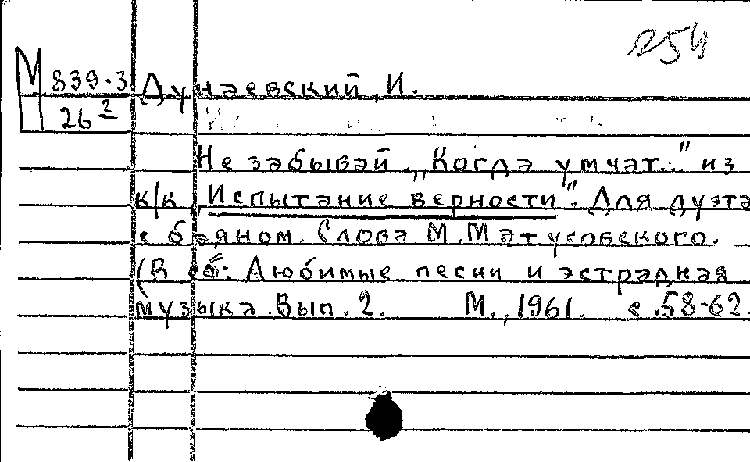 254
М 839-3
26²
Дунаевский И.
Не забывай „Когда умчат..." из
к/к „Испытание верности". Для дуэта
с баяном. Слова М. Матусовского.
(В сб: Любимые песни и эстрадная
музыка. Вып. 2. М., 1961. с. 58-62.